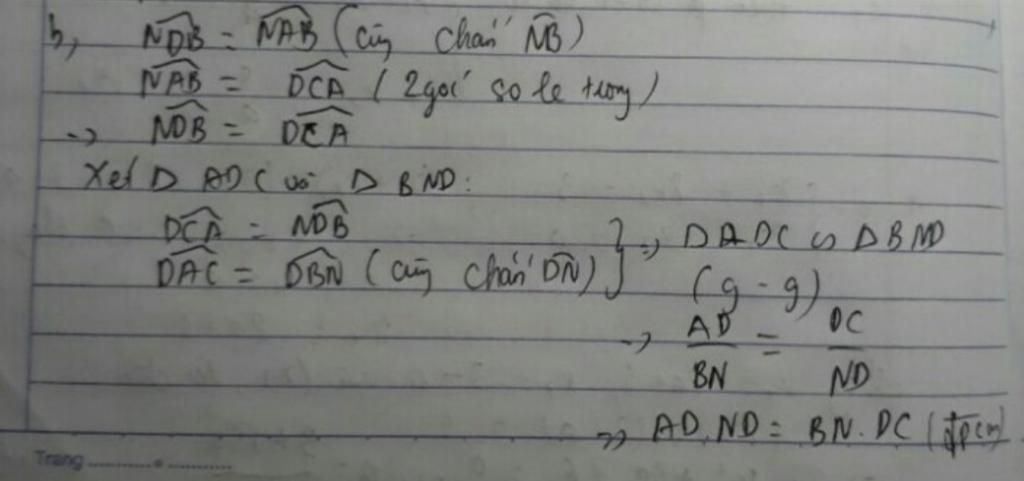 b, NDB = NAB (cùng chắn NB)
NAB = DCA (2 góc so le trong)
→ NDB = DCA
Xét Δ ADC và Δ BND:
DCA = NDB
DAC = DBN (cùng chắn DN) } ⇒ ΔADC ∽ ΔBND
(g-g)
→ AD/BN = DC/ND
⇒ AD.ND = BN.DC (đpcm)
Trang